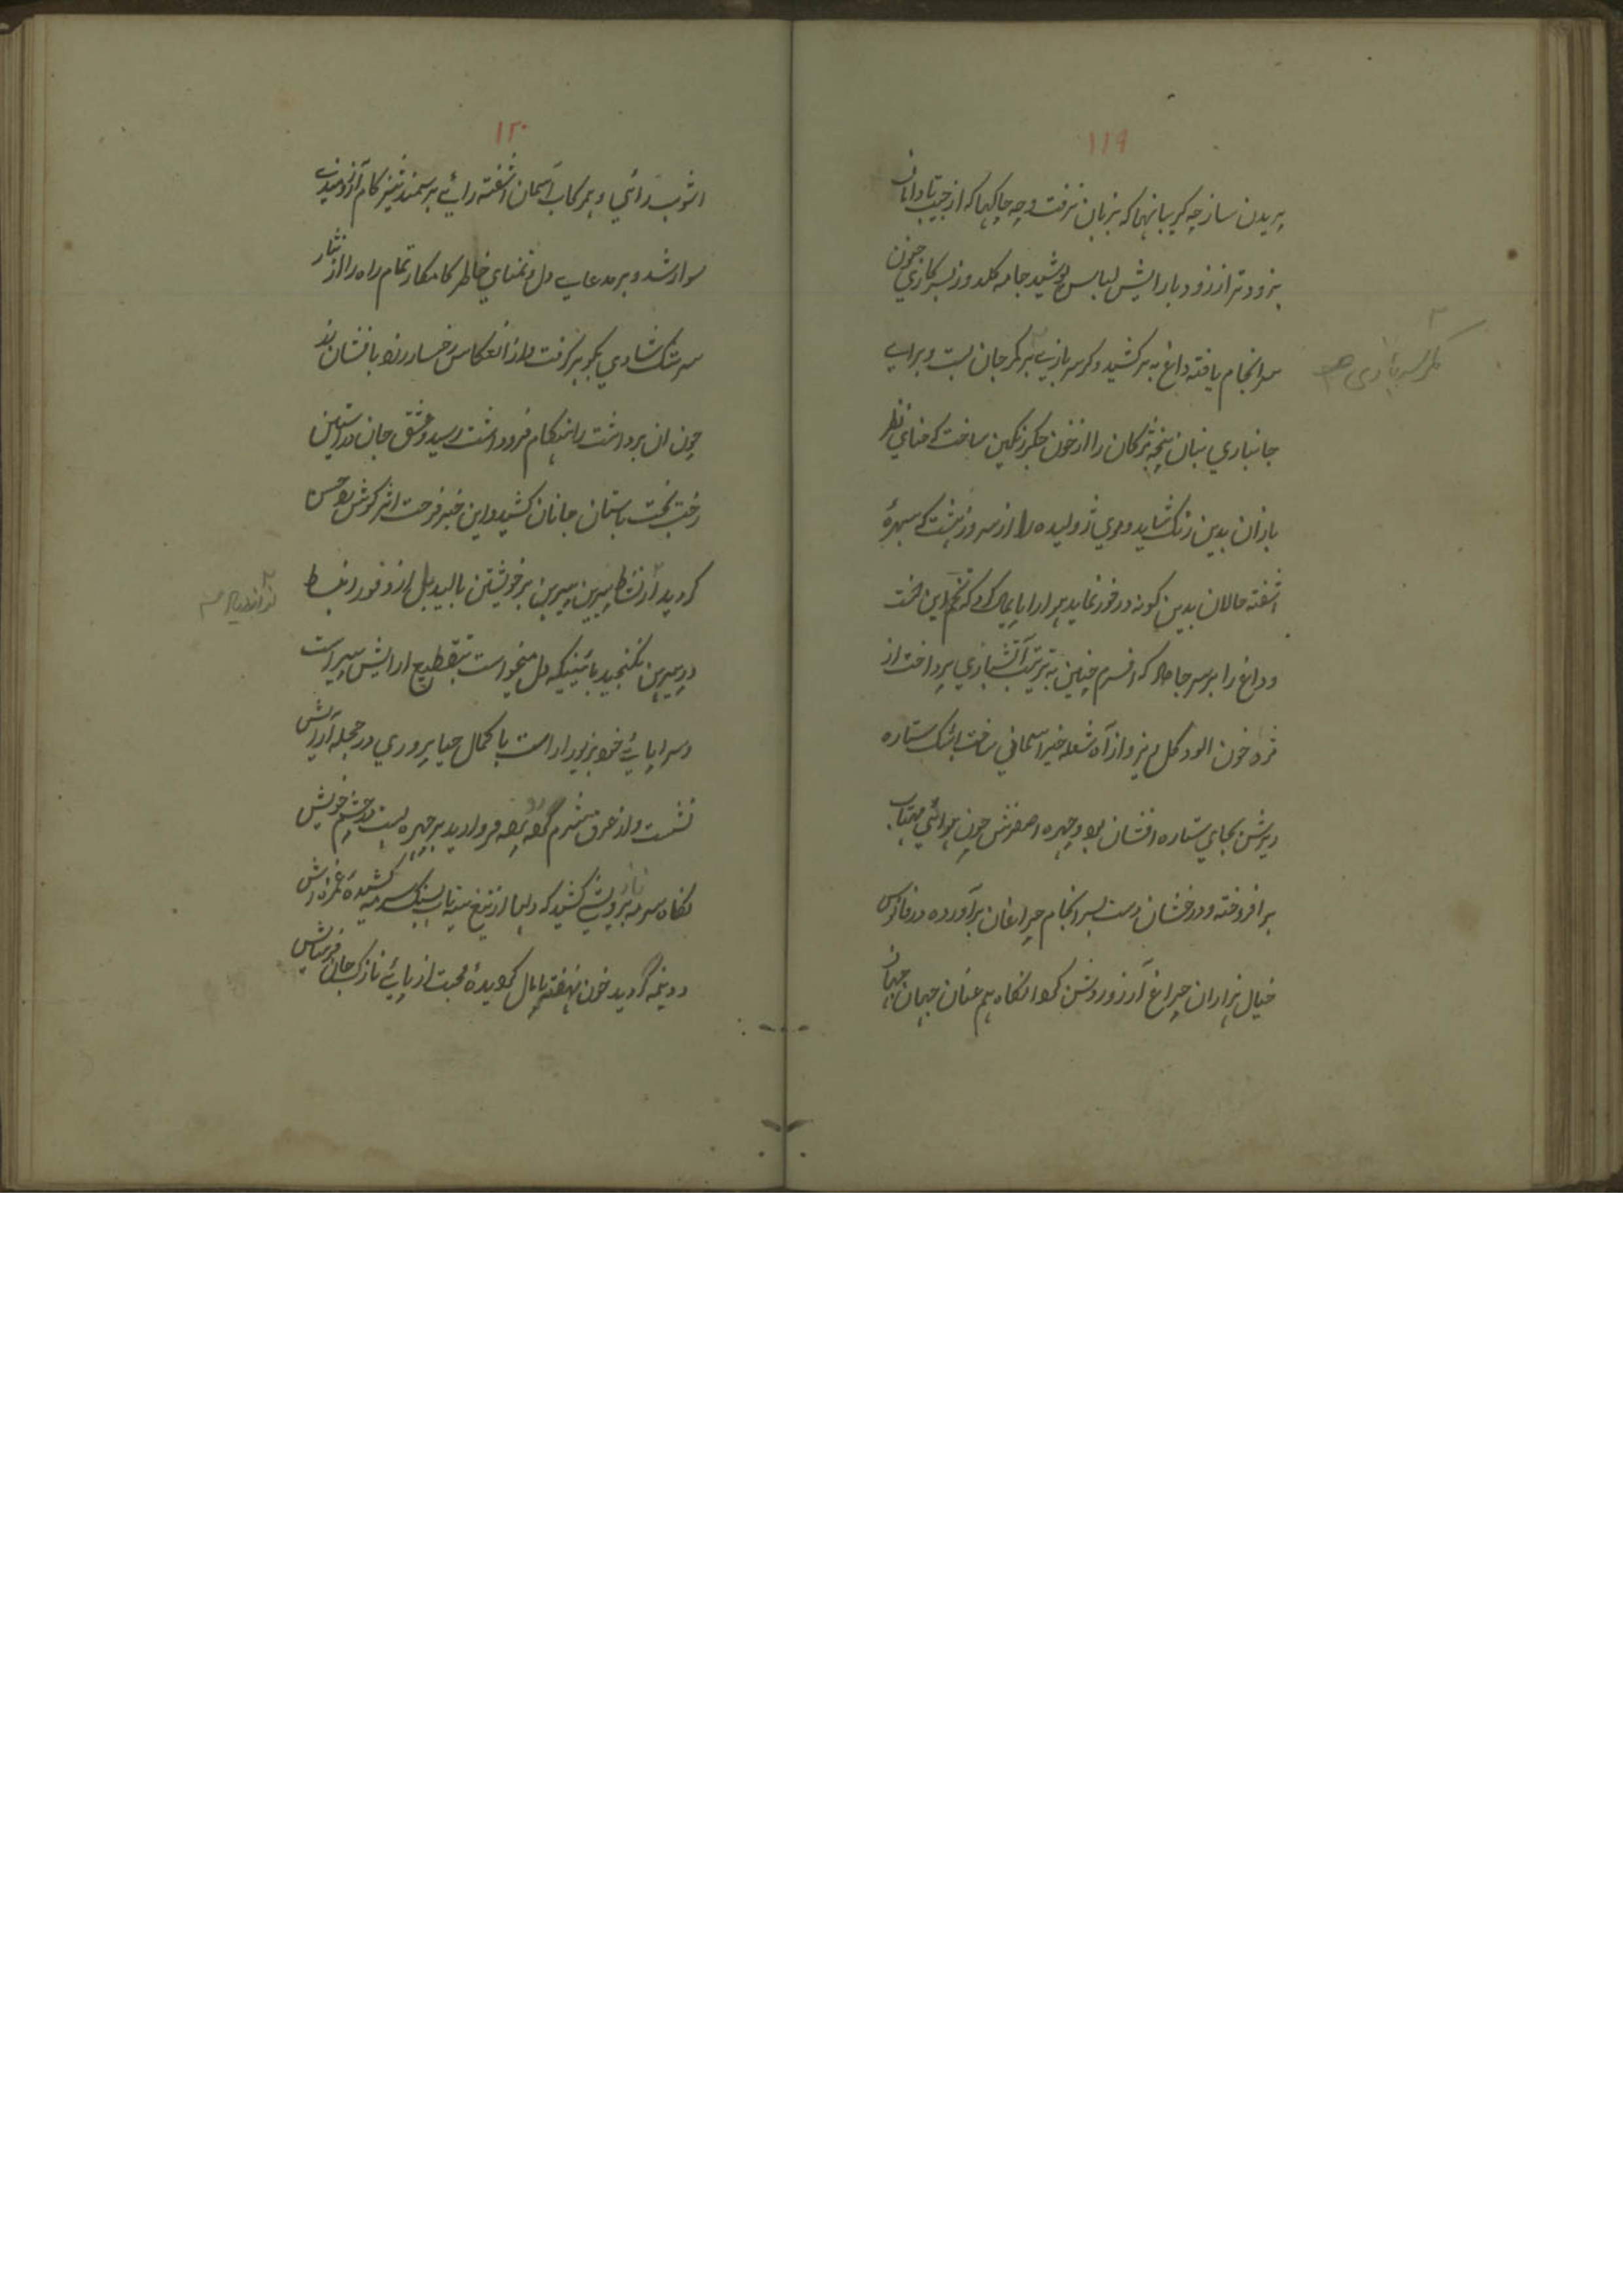 ١١٩
پریدن ساز چه کریبانها که بزبان نرفت و چه چاکها که از جیب تا دامان
بزودتر از زود بارایش لباس پوشید جامه کلدوز بسرکاری جنون
سرانجام یافته داغ به برکشید و کمر سربازی بر کمر جان بست و برای
جانبازی بنان پنجه مژکان را از خون جکر رنکین ساخت که حنای نظر
بازان بدین رنک شاید و موی ژولیده را از سر و زینت که سهره
اشفته حالان بدین کونه در خور نماید
و داغ را بر سر جا داد که افسرم چنین به ترتیب آتشبازی پرداخت از
مژه خون الود کل ریز و از آه شعله خیز اسمانی ساخت اشک ستاره
ریزش بجای ستاره افشان بود و چهره اصفرش چون هوائی مهتاب
برافروخته و درخشان دست بسرانجام چراغان برآورده در فانوس
خیال هزاران چراغ آرزو روشن کرد انکاه هم عنان جهان جهان
کمر سربازی
١٢٠
اشوب رائی و هم رکاب آسمان اسمان اشفته رایے بر سمند تیز کام آرزومندی
سوار شد و بر مدعای دل و تمنای خاطر کامکار تمام راه را از نثار
سرشک شادی بکوهر کرفت و از انعکاس رخسار زرد بافشان زر
چون ان برداشت را هنکام فرود داشت رسید و عشق جان در آستین
رخت بخت باستان جانان کشید و این خبر فرحت اثر کوش زد حسن
کردید از نشاط پیرهن پیرهن بر خویشتن بالید بل از وفور انبساط
در پیرهن نکنجید بائینیکه دل میخواست بتقطیع ارایش پیراست
و سراپایے خود بزیور اراست با کمال حیا پروری در حجله آرایش
نشست و از عرق شرم مروارید بر چهره بست در چشم خویش
نکاه سرمه کشید که دلها از تیغ بسنک سرمه کشیدهٔ غمزه اش
دو نیمه کردید خون نهفته پامال کرویدهٔ محبت از پایے نازک جان فرسایش